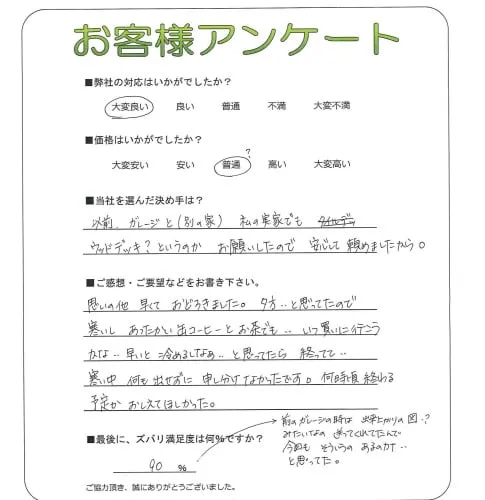 お客様アンケート
■弊社の対応はいかがでしたか?
大変良い 良い 普通 不満 大変不満
■価格はいかがでしたか?
?
大変安い 安い 普通 高い 大変高い
■当社を選んだ決め手は?
以前、ガレージと(別の家) 私の実家でも
ウッドデッキ?というのか お願いしたので 安心して 頼めましたから。
■ご感想・ご要望などをお書き下さい。
思いの他 早くて おどろきました。夕方‥と思ってたので
寒いし あったかい缶コーヒーとお茶でも‥ いつ買いに行こう
かな‥ 早いと冷めるしなぁ‥と思ってたら 終ってて‥
寒い中 何も出せずに 申し分けなかったです。何時頃 終わる
予定か おしえてほしかった。
前のガレージの時は 出来上がりの図?
みたいなの 送ってくれてたんで
今回も そういうの あるのか‥
と思ってた。
■最後に、ズバリ満足度は何%ですか?
90 %
ご協力頂き、誠にありがとうございました。